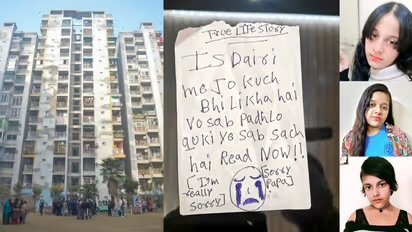 True Life Story
Is Dairi
me Jo Kuch
Bhi Likha hai
Vo sab Padhlo
quki ye sab sach
hai Read NOW!!
[I'm really sorry]
[Sorry Papa]